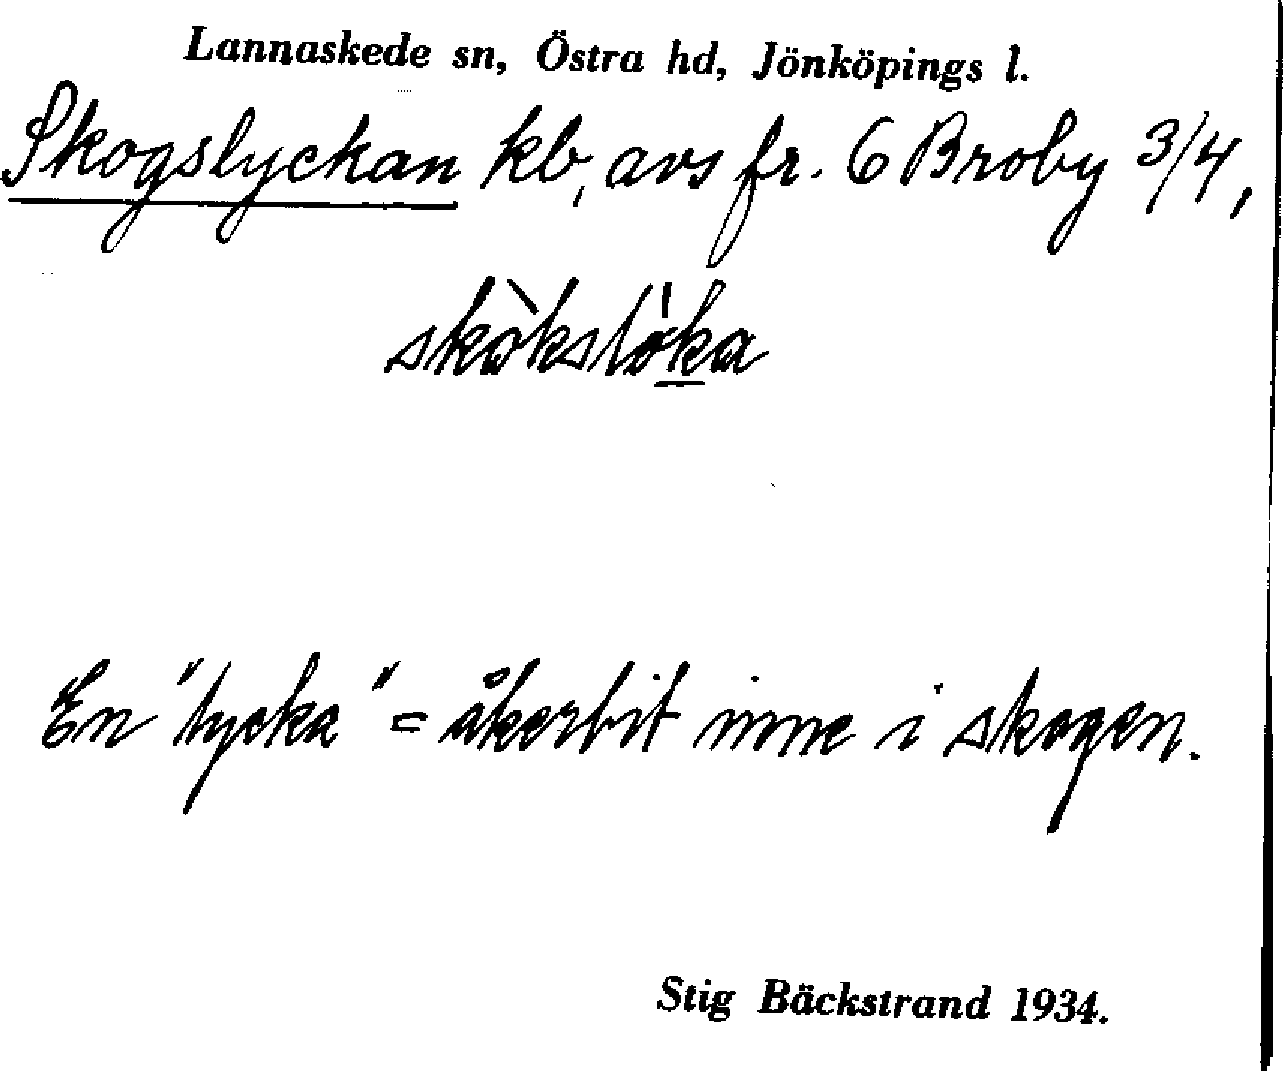 Lannaskede sn, Östra hd, Jönköpings l.
Skogslyckan kb, avs fr. 6 Broby 3/4,
skòkslöka
En "lycka" = åkerbit inne i skogen.
Stig Bäckstrand 1934.